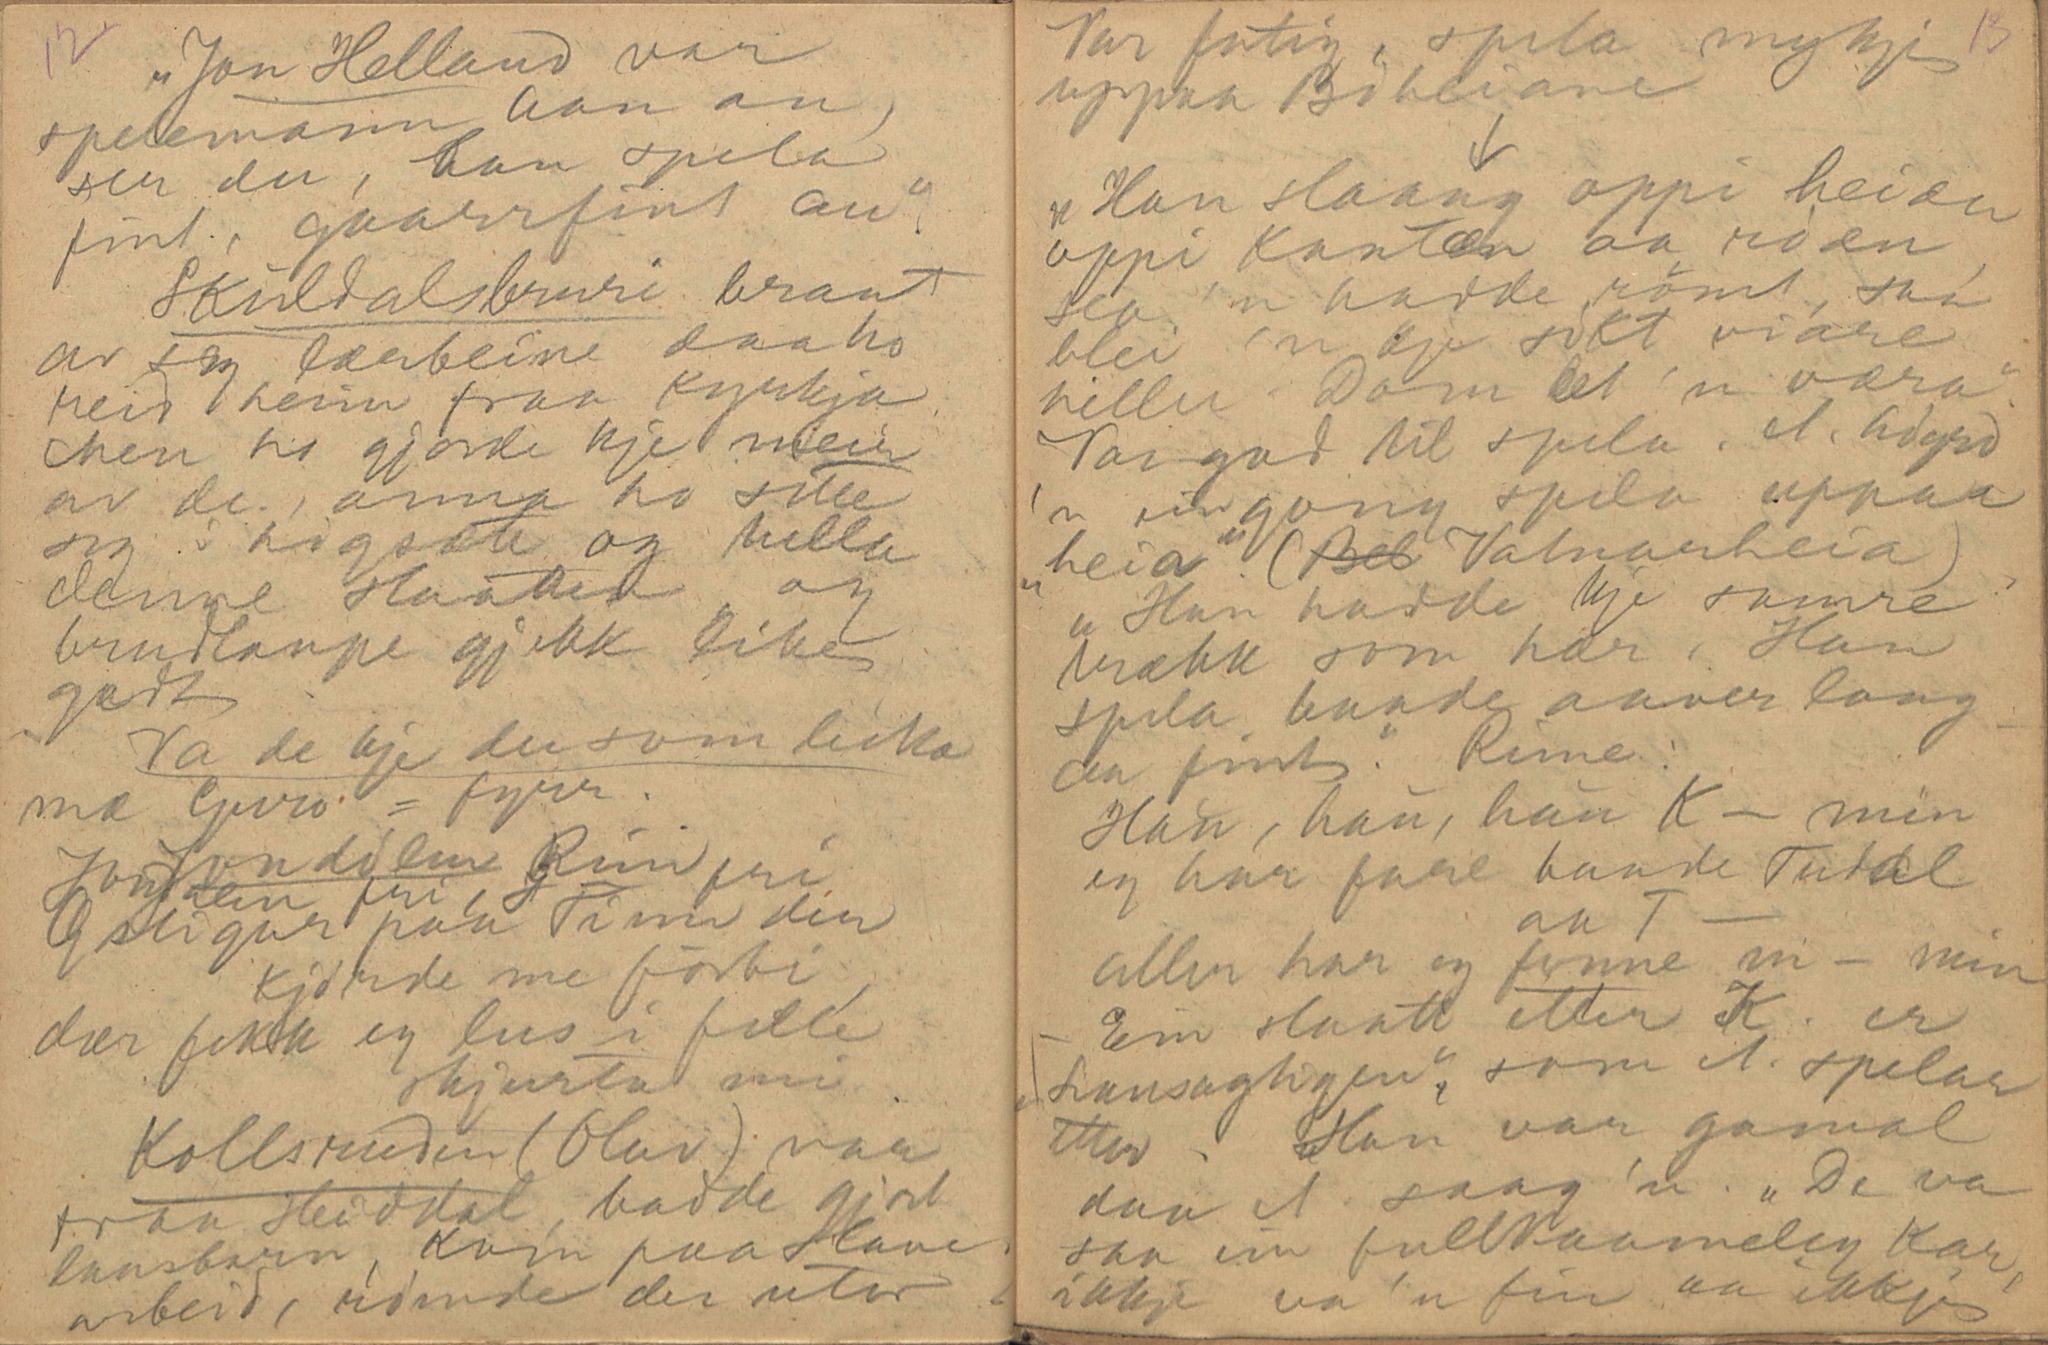 12
"Jon Helland var
spelemann han au,
ser du, han spela
fint, gaarrfint au".
Skuldalsbruri braut
av seg lærbeine daa ho
reid heim fraa kyrkja
men ho gjorde kje meir
av de, anna ho sette
seg i høgsæte og tulla
denne slaatten og
brudlaupe gjekk likes
godt
Va de kje du som leika
mæ Guro = fyrr.
Jon
Rim fri
paa Tinn der
kjørde me forbi
dær fekk eg lus i felle
skjurta mi
Kollsruden (Olav) var
fraa Heiddal, hadde gjort
lausbarn, kom paa slave-
arbeid, rømde der utor
13
Var fatig, spela mykje
uppaa Böheiane
↓
"Han slaang oppi heiæn
oppi Kanten aa roæn,
sea 'n hadde römt, saa
blei 'n kje sökt viare
heller. Dom let 'n væra".
Var god til spela. A. höyrd
'n eingong spela uppaa
heia" (Vatnarheia)
"Han hadde kje samre
trækk som her, Han
spela baade aaver laag
aa fint". Rime:
Han, han, han K – min
eg har fare baade Tudal
aa T –
aller har eg funne m – min
– Ein slaatt etter K. er
"som A. spelar
etter. Han var gamal
daa A. saag 'n. "De va
saa ein fullkaameleg Kar,
ikkje va 'n fin aa ikkje